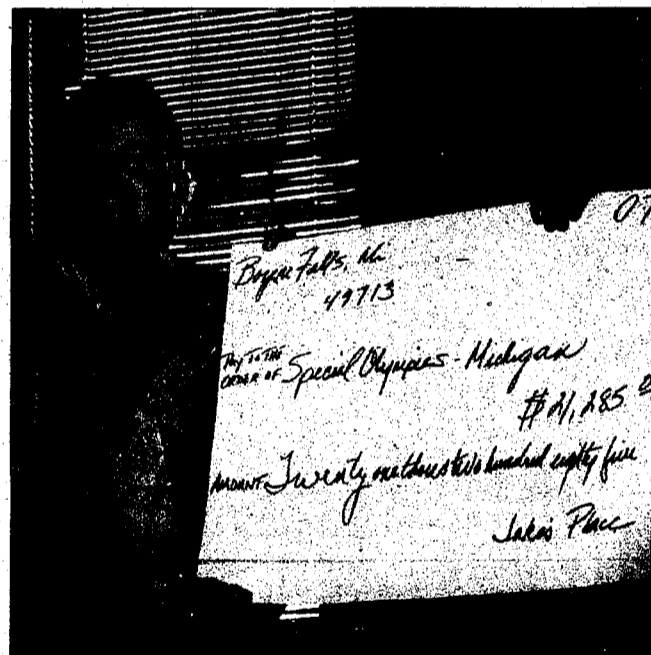 07
Boyne Falls, Mi
49713
PAY TO THE
ORDER OF Special Olympics - Michigan
$ 21,285
AMOUNT Twenty one thous two hundred eighty five
Jake's Place